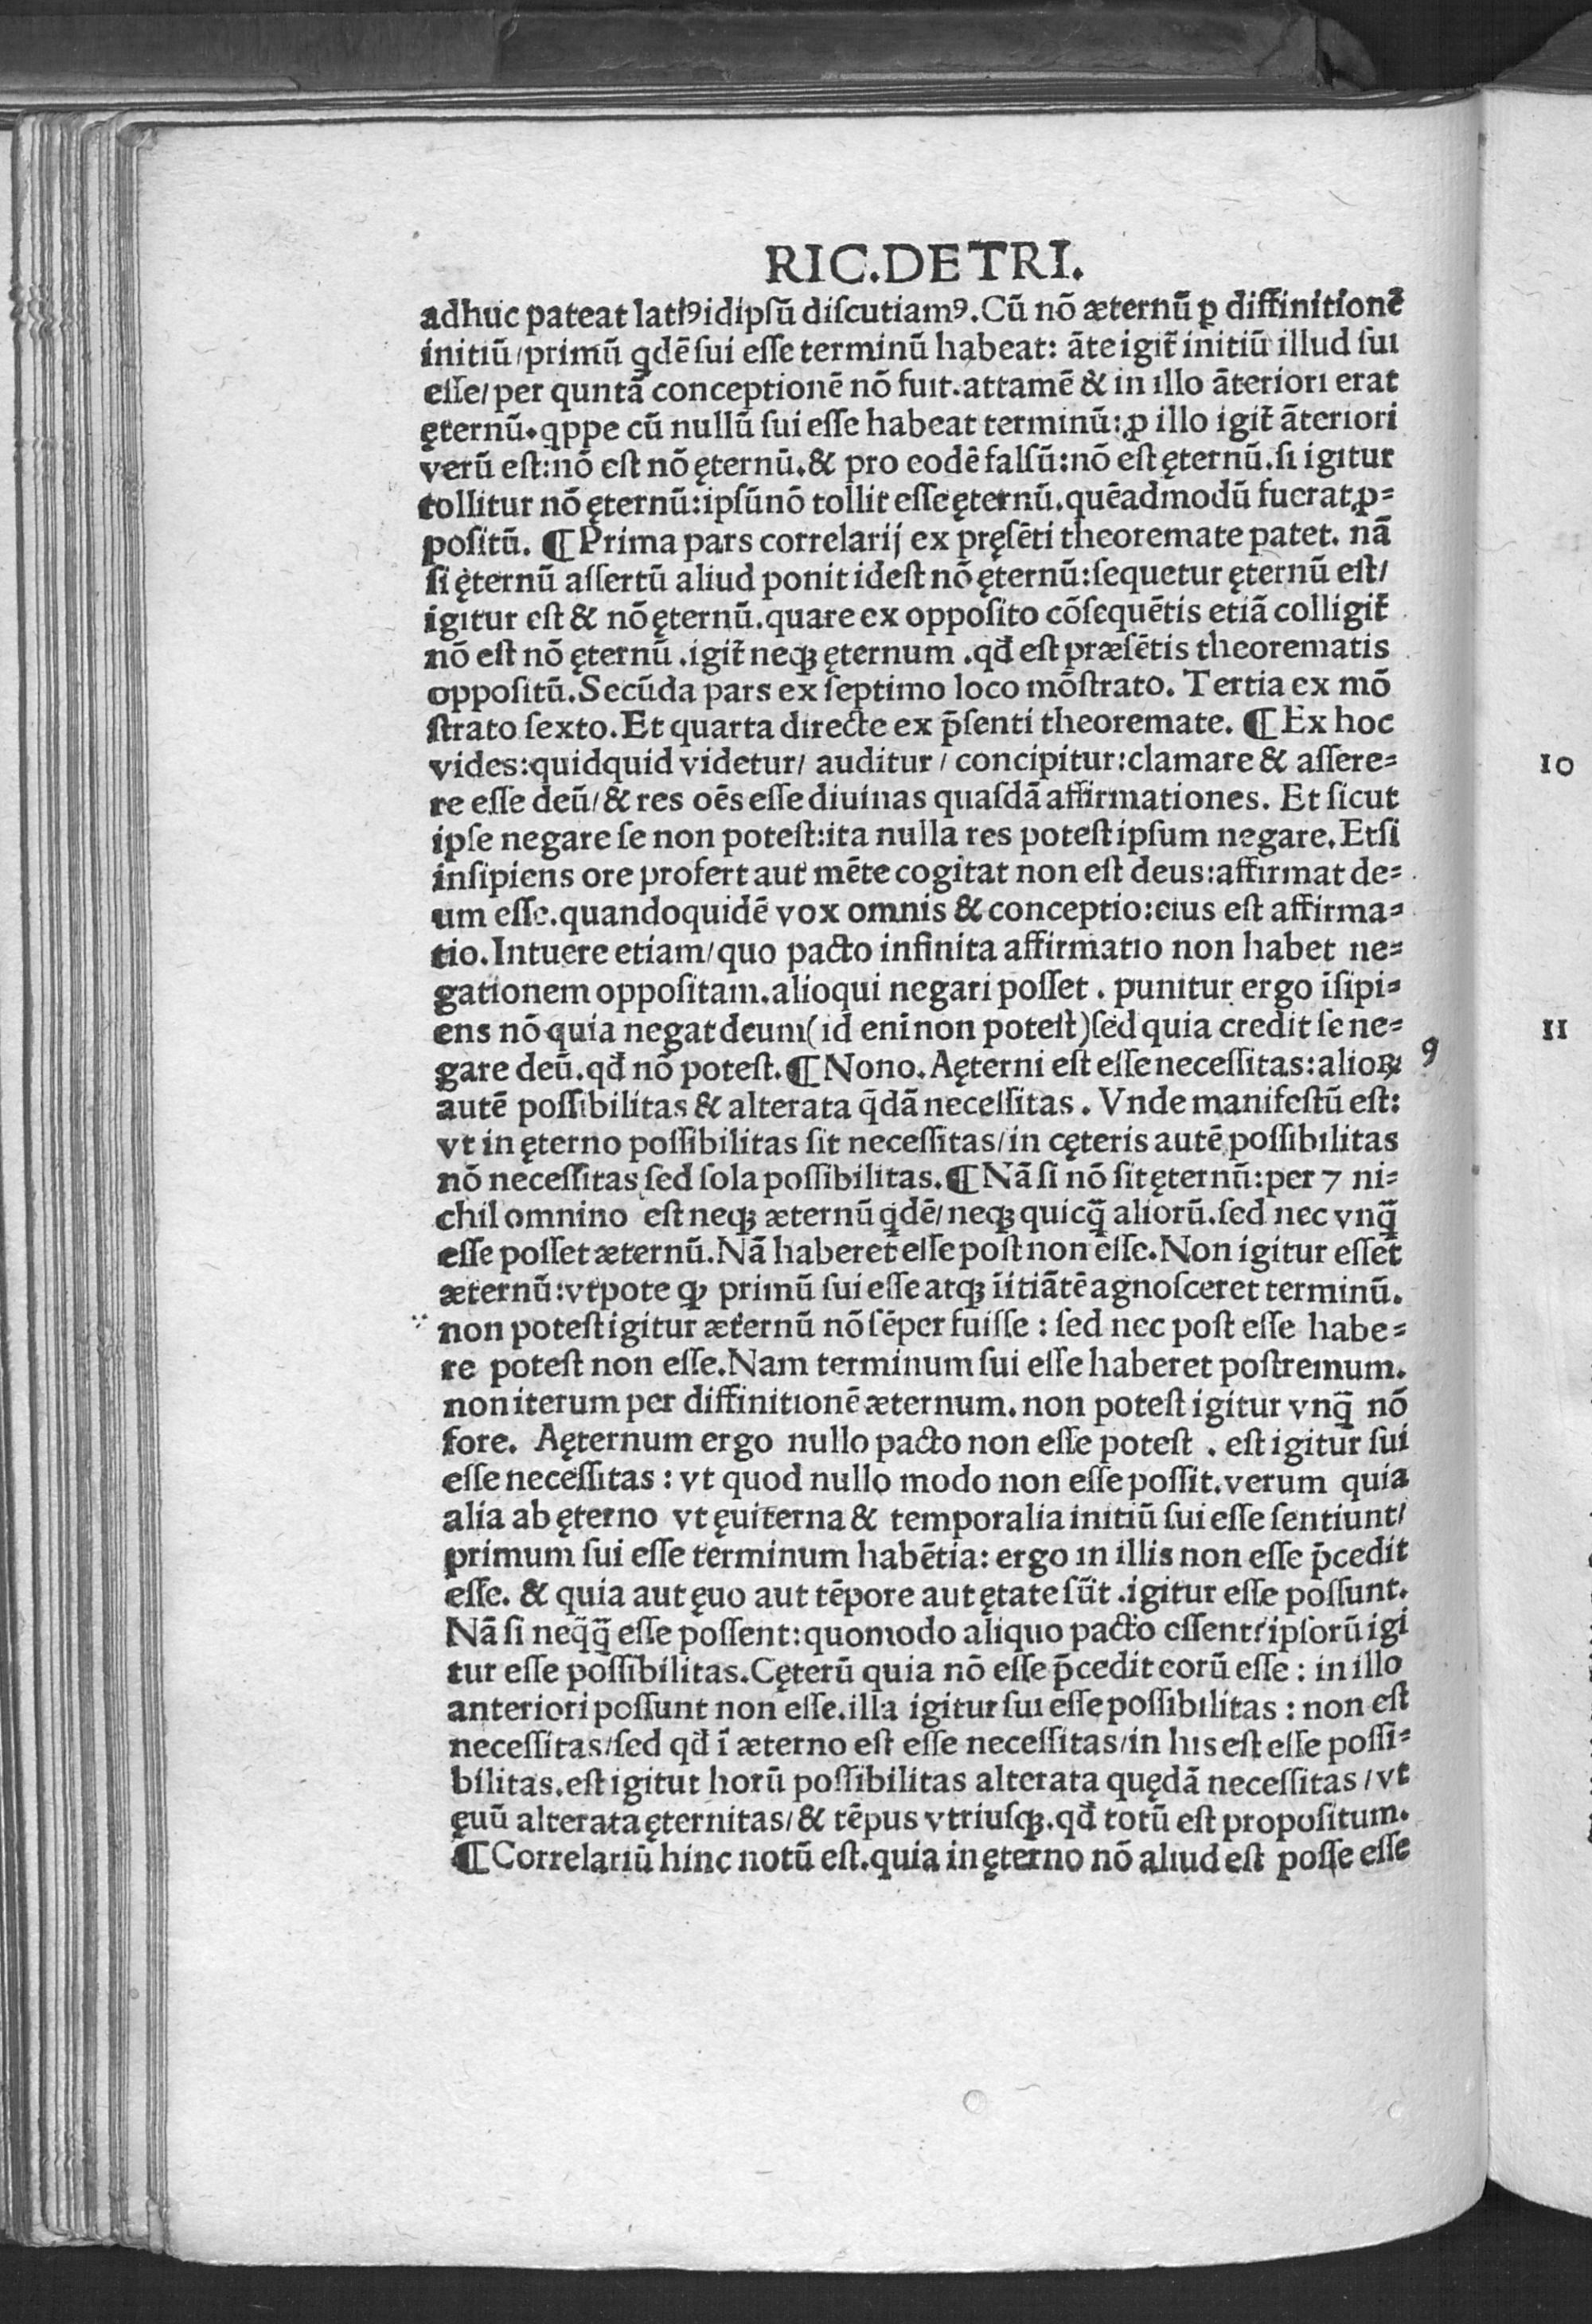 RIC.DE TRI.
adhuc pateat latiꝰ idipſū diſcutiamꝰ. Cū nō æternū ꝑ diffinitionē
initiū/primū qdē ſui eſſe terminū habeat: āte igit̄ initiū illud ſui
eſſe/per quntā conceptionē nō fuit. attamē & in illo āteriori erat
ęternū. qppe cū nullū ſui eſſe habeat terminū: ꝓ illo igit̄ āteriori
verū est: nō est nō ęternū. & pro eodē falſū: nō eſt ęternū. ſi igitur
tollitur nō ęternū: ipſū nō tollit eſſe ęternū. quēadmodū fuerat ꝓ-
poſitū. ¶ Prima pars correlarij ex pręſēti theoremate patet. nā
ſi ęternū aſſertū aliud ponit idest nō ęternū: ſequetur ęternū eſt/
igitur eſt & nō ęternū. quare ex oppoſito cōſequētis etiā colligit̄
nō eſt nō ęternū. igit̄ neqꝫ ęternum. qđ eſt præſētis theorematis
oppoſitū. Secūda pars ex ſeptimo loco mōſtrato. Tertia ex mō
ſtrato ſexto. Et quarta directe ex p̄ſenti theoremate. ¶ Ex hoc
vides: quidquid videtur/ auditur/ concipitur: clamare & aſſere-
re eſſe deū/ & res oēs eſſe diuinas quaſdā affirmationes. Et ſicut
ipſe negare ſe non poteſt: ita nulla res poteſt ipſum negare. Etſi
inſipiens ore profert aut mēte cogitat non eſt deus: affirmat de-
um eſſe. quandoquidē vox omnis & conceptio: eius eſt affirma-
tio. Intuere etiam/ quo pacto infinita affirmatio non habet ne-
gationem oppoſitam. alioqui negari poſſet. punitur ergo īſipi-
ens nō quia negat deum (id enī non poteſt) ſed quia credit ſe ne-
gare deū. qđ nō poteſt. ¶ Nono. Aęterni eſt eſſe neceſſitas: alioꝝ 9
autē poſſibilitas & alterata q̄dā neceſſitas. Vnde manifeſtū eſt:
vt in ęterno poſſibilitas ſit neceſſitas/ in cęteris autē poſſibilitas
nō neceſſitas ſed ſola poſſibilitas. ¶ Nā ſi nō ſit ęternū: per 7 ni-
chil omnino eſt neqꝫ æternū qdē/ neqꝫ quicꝗ̄ aliorū. ſed nec vnꝗ̄
eſſe poſſet æternū. Nā haberet eſſe poſt non eſſe. Non igitur eſſet
æternū: vtpote ꝙ primū ſui eſſe atqꝫ īitiātē agnoſceret terminū.
non poteſt igitur æternū nō ſēper fuiſſe: ſed nec poſt eſſe habe-
re poteſt non eſſe. Nam terminum ſui eſſe haberet poſtremum.
non iterum per diffinitionē æternum. non poteſt igitur vnꝗ̄ nō
fore. Aęternum ergo nullo pacto non eſſe poteſt. eſt igitur ſui
eſſe neceſſitas: vt quod nullo modo non eſſe poſſit. verum quia
alia ab ęterno vt ęuiterna & temporalia initiū ſui eſſe ſentiunt/
primum ſui eſſe terminum habētia: ergo in illis non eſſe p̄cedit
eſſe. & quia aut ęuo aut tēpore aut ętate ſūt. igitur eſſe poſſunt.
Nā ſi neq̄ꝗ̄ eſſe poſſent: quomodo aliquo pacto eſſent? ipſorū igi
tur eſſe poſſibilitas. Cęterū quia nō eſſe p̄cedit eorū eſſe: in illo
anteriori poſſunt non eſſe. illa igitur ſui eſſe poſſibilitas: non eſt
neceſſitas/ ſed qđ ī æterno eſt eſſe neceſſitas/ in his eſt eſſe poſſi-
bilitas. eſt igitur horū poſſibilitas alterata quędā neceſſitas/ vt
ęuū alterata ęternitas/ & tēpus vtriuſqꝫ. qđ totū eſt propoſitum.
¶ Correlariū hinc notū eſt. quia in ęterno nō aliud eſt poſſe eſſe
10
11